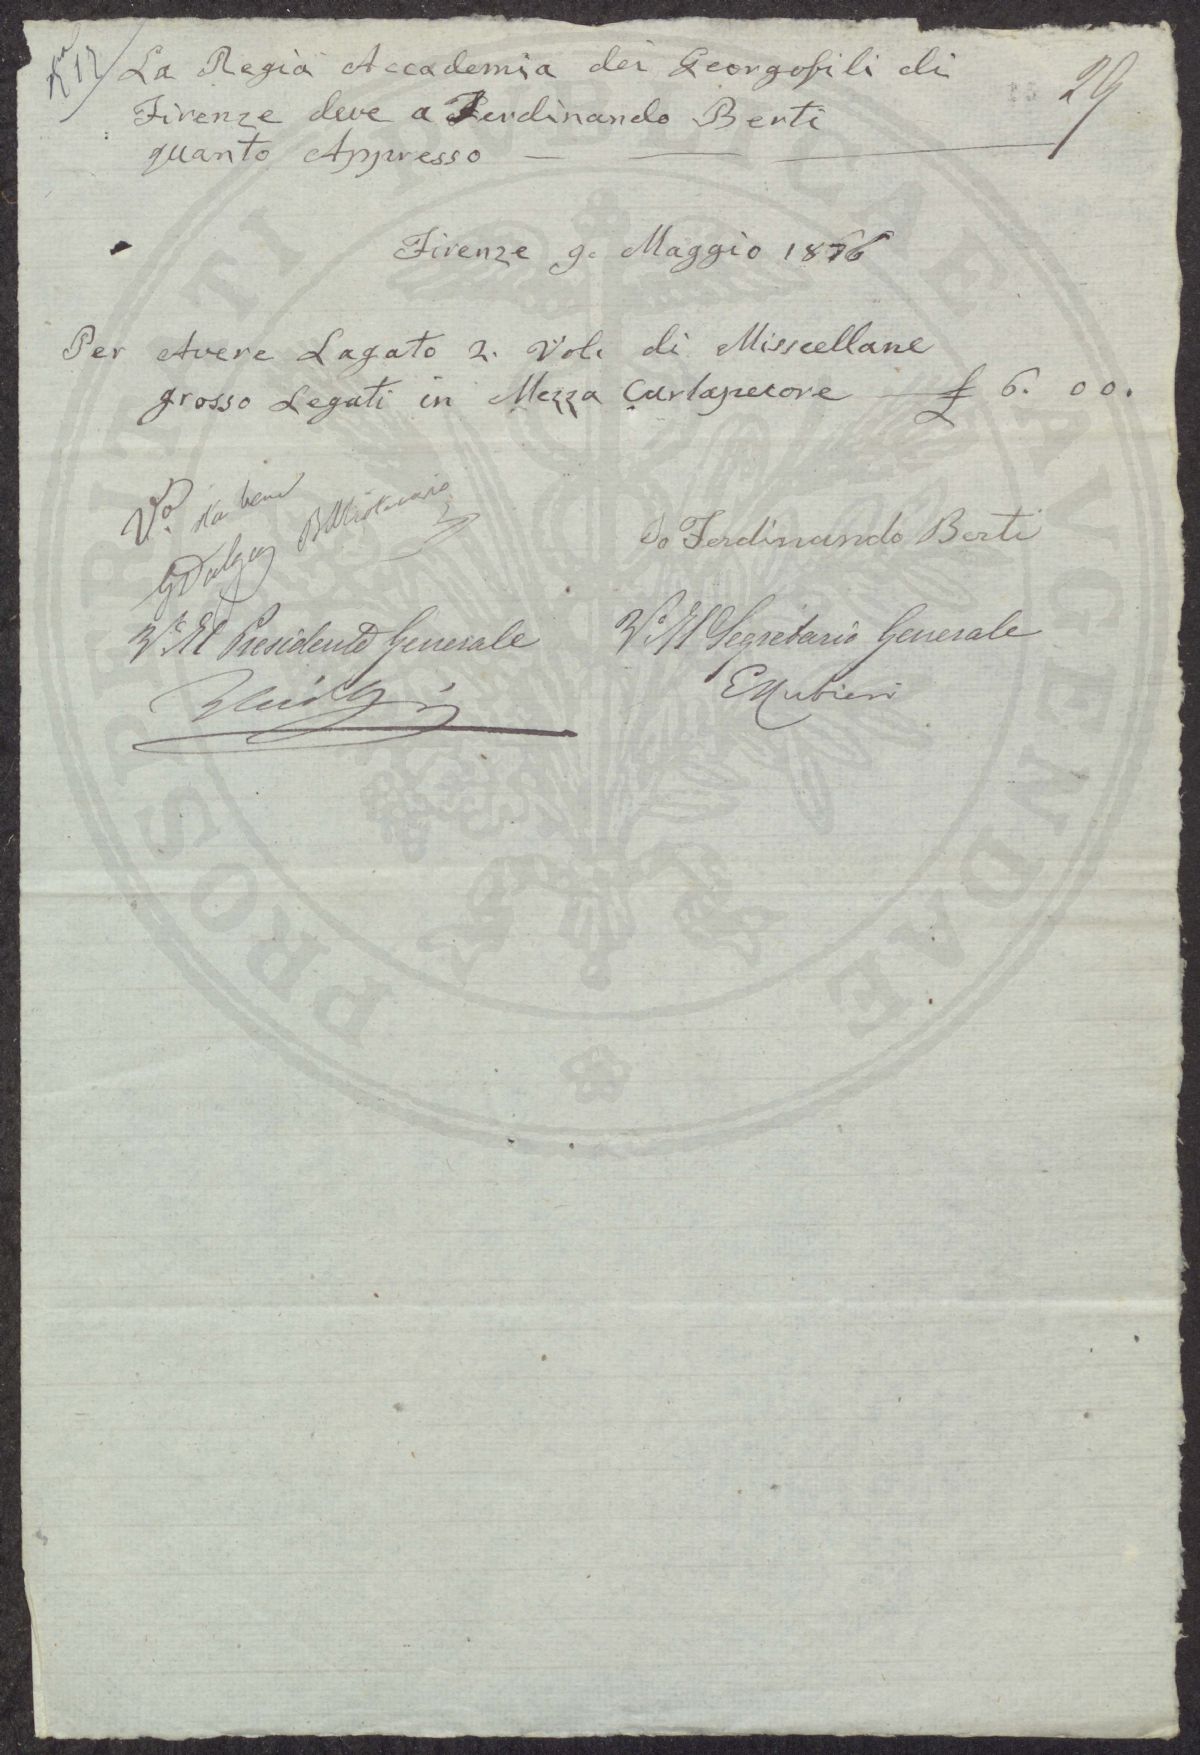 La Regia Accademia dei Georgofili di
Firenze deve a Ferdinando Berti
quanto Appresso
29
Firenze 9. Maggio 1876
Per Avere Lagato 2. Vol. di Miscellane
grosso Legati in Mezza Cartapecore £ 6. 00.
Vo. sta bene
Bibliotecario
Io Ferdinando Berti
Vo. Il Presidente Generale
Vo. Il Segretario Generale
E Rubieri
PROSPERITATI PUBLICAE AUGENDAE